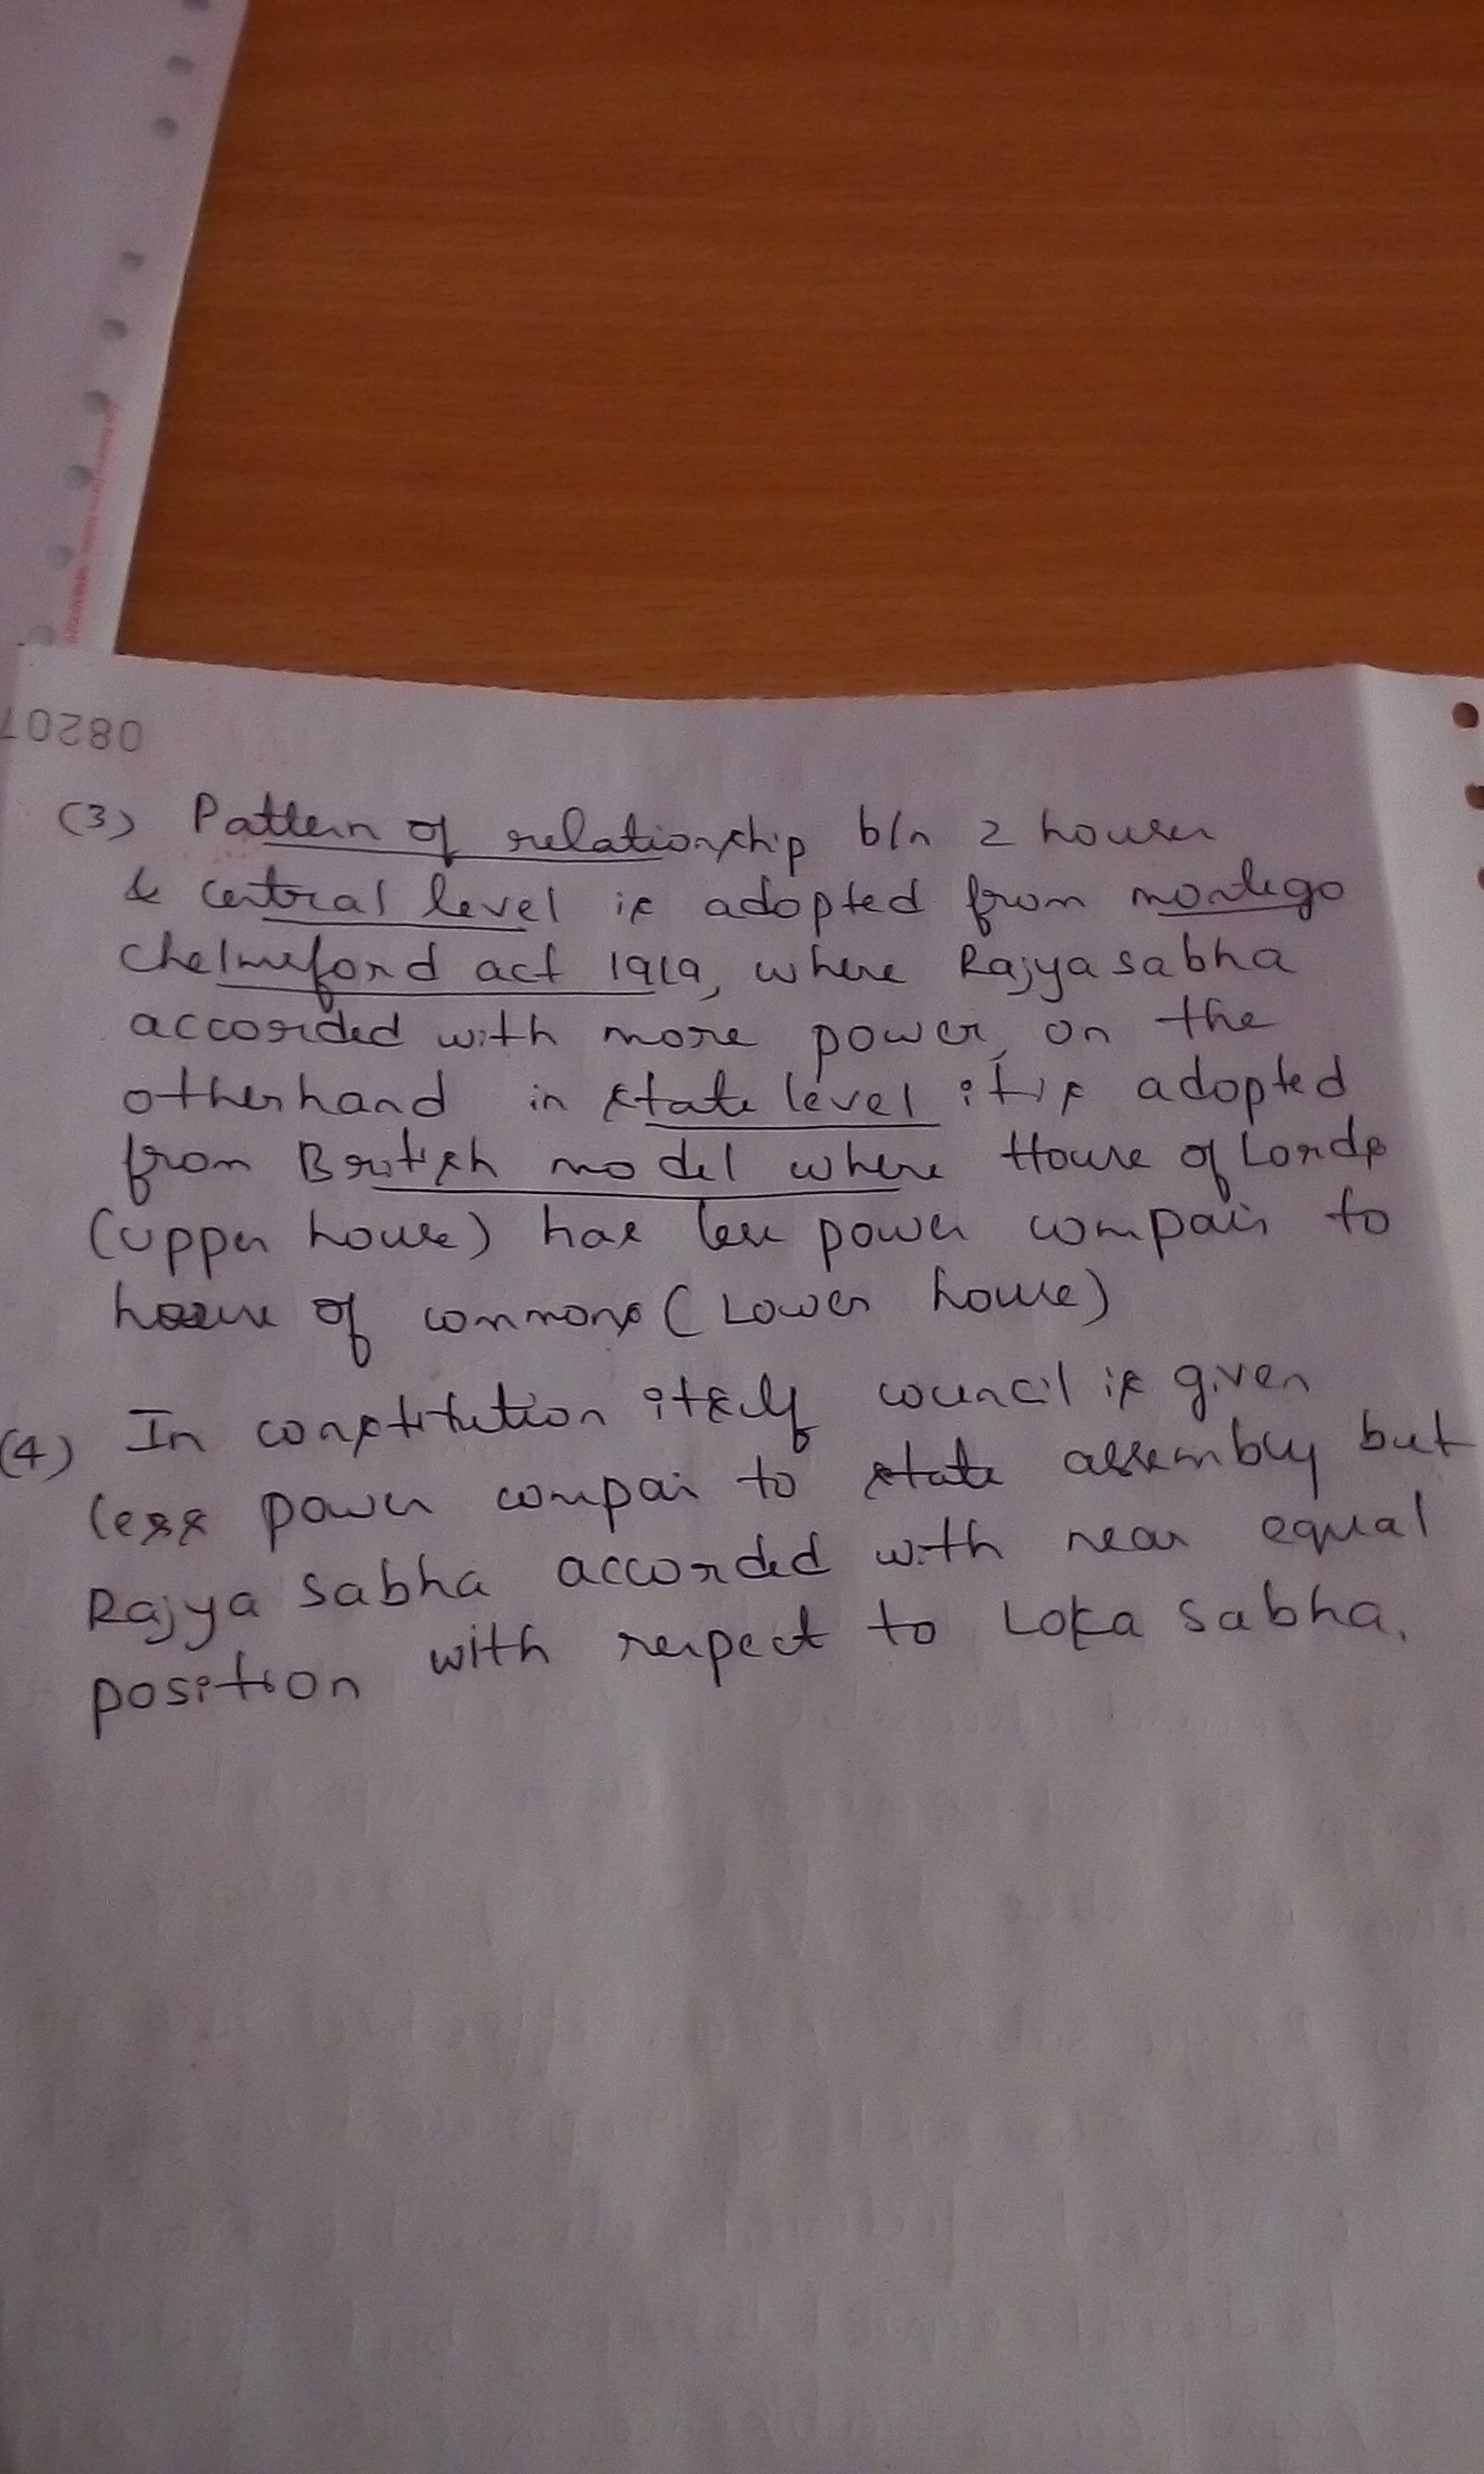 08207
(3) Pattern of relationship b/n 2 houses
& central level is adopted from montego
Chelmsford act 1919, where Rajya sabha
accorded with more power, on the
otherhand in state level it is adopted
from British model where House of Lords
(upper house) has less power compair to
house of commons (Lower house)
(4) In constitution itself council is given
less power compair to state assembly but
Rajya Sabha accorded with near equal
position with respect to Loka Sabha.